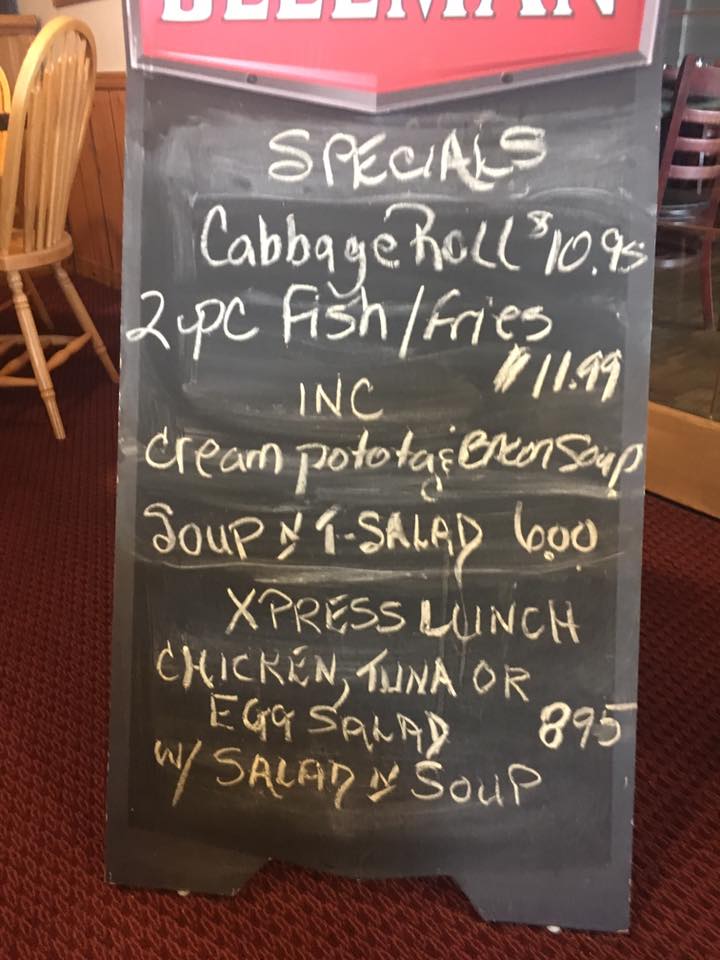 SLEEMAN
SPECIALS
Cabbage Roll $10.95
2 pc Fish/Fries
$11.99
INC
Cream potota & Bacon Soup
SOUP N T-SALAD 6.00
XPRESS LUNCH
CHICKEN, TUNA OR
EGG SALAD 895
W/ SALAD N SOUP